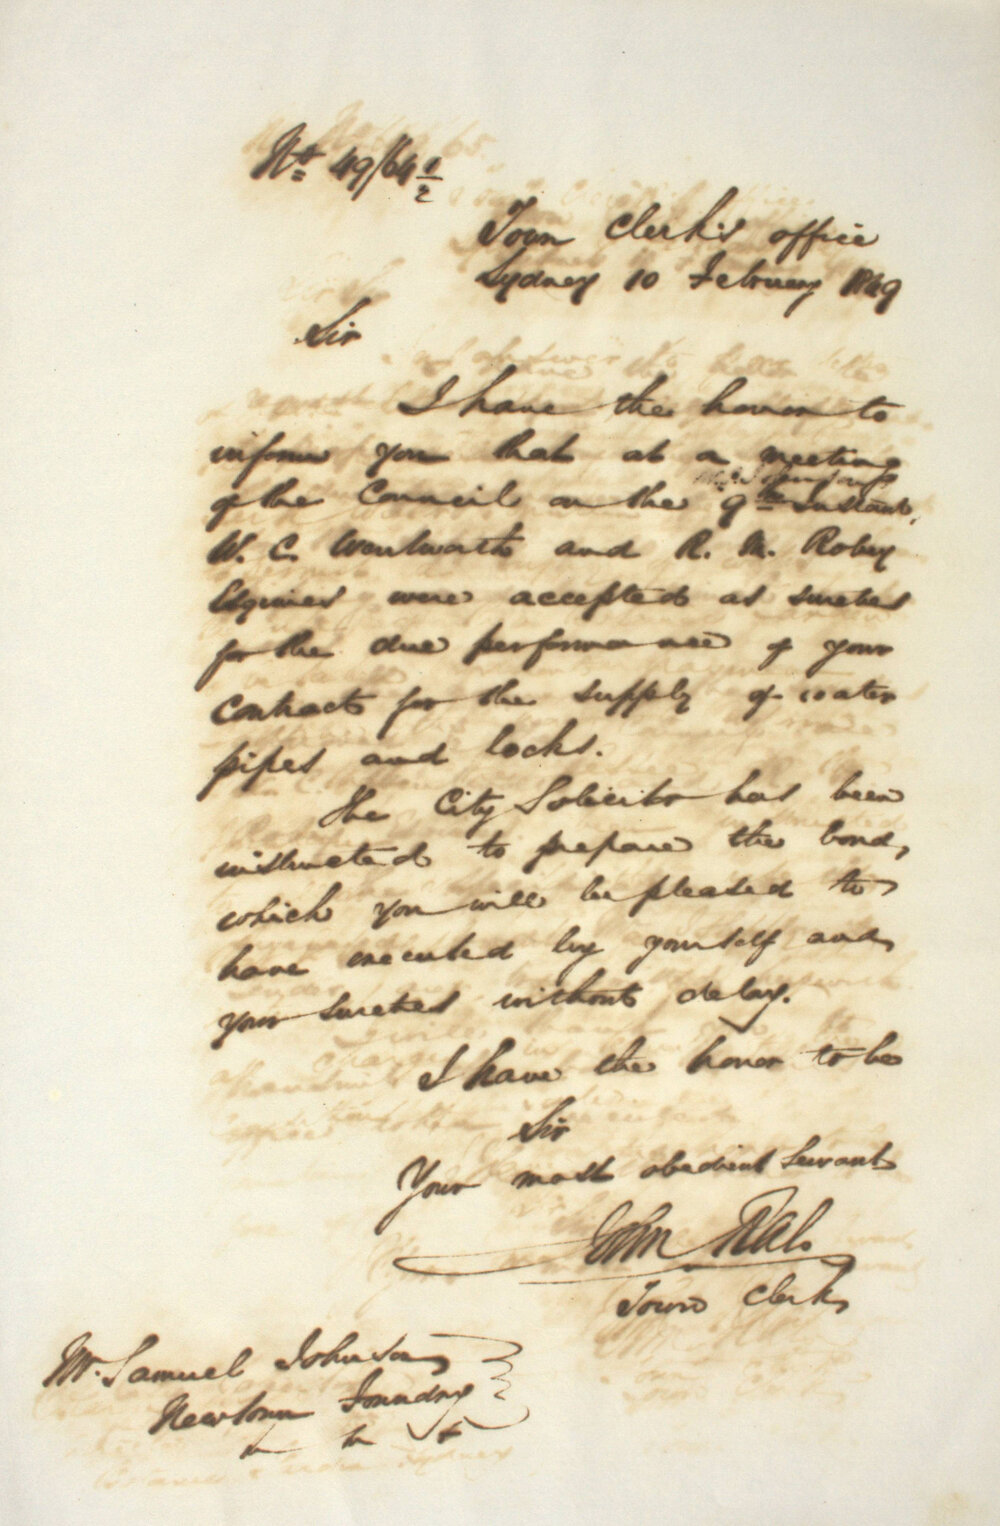 No. 49/64 1/2
Town Clerk's office
Sydney 10 February 1849
Sir
I have the honor to
inform you that at a meeting
of the Council on the 9th Instant,
W. C. Wentworth and R. M. Robey
Esquires were accepted as sureties
for the due performance of your
contract for the supply of water
pipes and locks.
The City Solicitor has been
instructed to prepare the bond,
which you will be pleased to
have executed by yourself and
your sureties without delay.
I have the honor to be
Sir
Your most obedient Servant
John Rae
Town Clerk
Mr. Samuel Johnson
Newtown Foundry